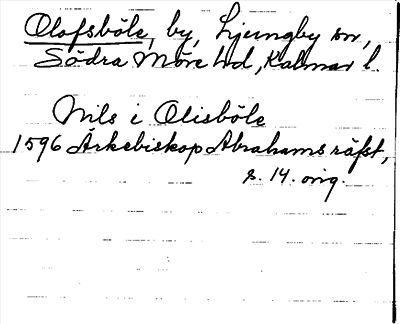 Olofsböle, by, Ljungby sn,
Södra Möre hd, Kalmar l.
Nils i Olisböle
1596 Ärkebiskop Abrahams räfst,
s. 14. orig.